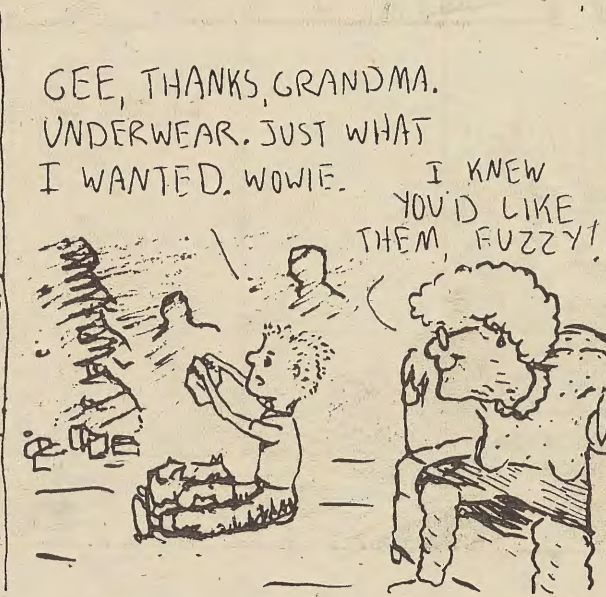 GEE, THANKS, GRANDMA.
UNDERWEAR. JUST WHAT
I WANTED. WOWIE.
I KNEW
YOU'D LIKE
THEM, FUZZY!